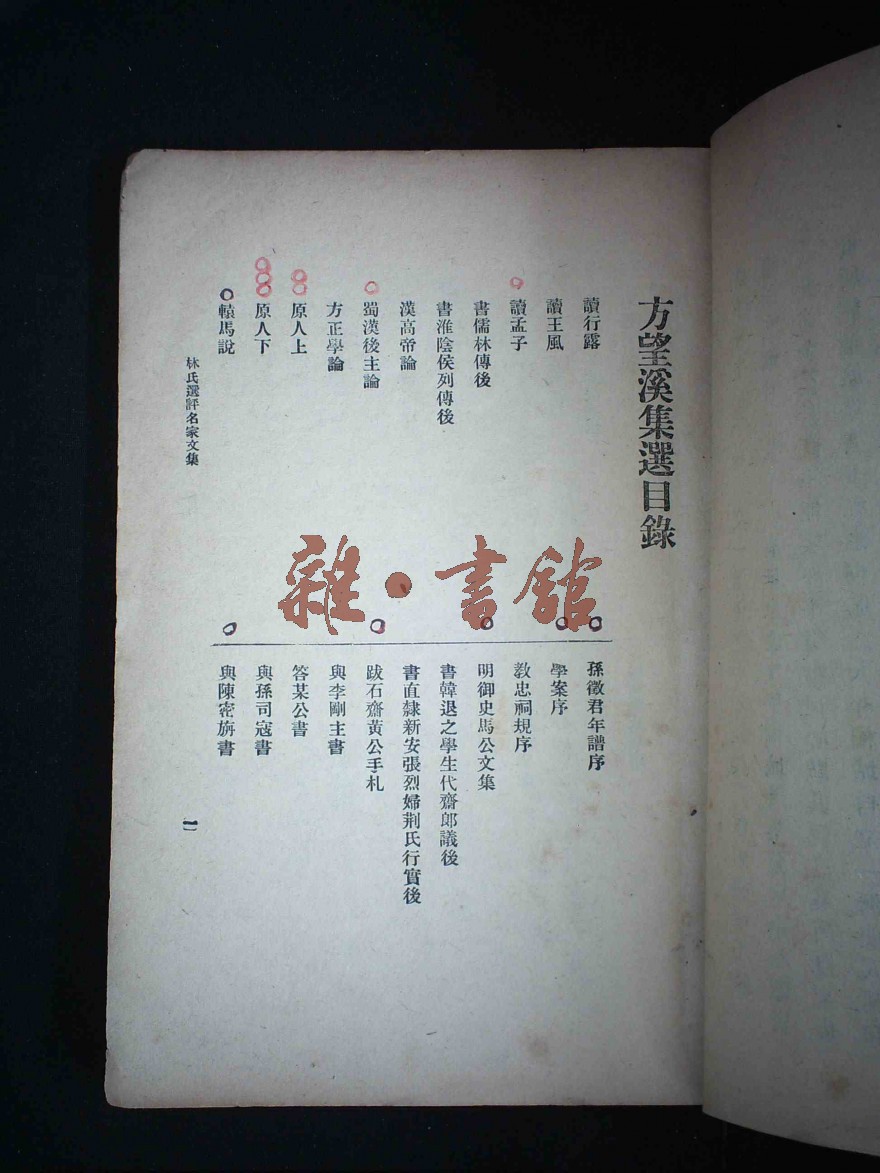 方望溪集選目錄
讀行露
讀王風
讀孟子
書儒林傳後
書淮陰侯列傳後
漢高帝論
蜀漢後主論
方正學論
原人上
原人下
轅馬說
孫徵君年譜序
學案序
敎忠祠規序
明御史馬公文集
書韓退之學生代齋郎議後
書直隸新安張烈婦荆氏行實後
跋石齋黃公手札
與李剛主書
答某公書
與孫司寇書
與陳密旃書
林氏選評名家文集
一
雜·書館